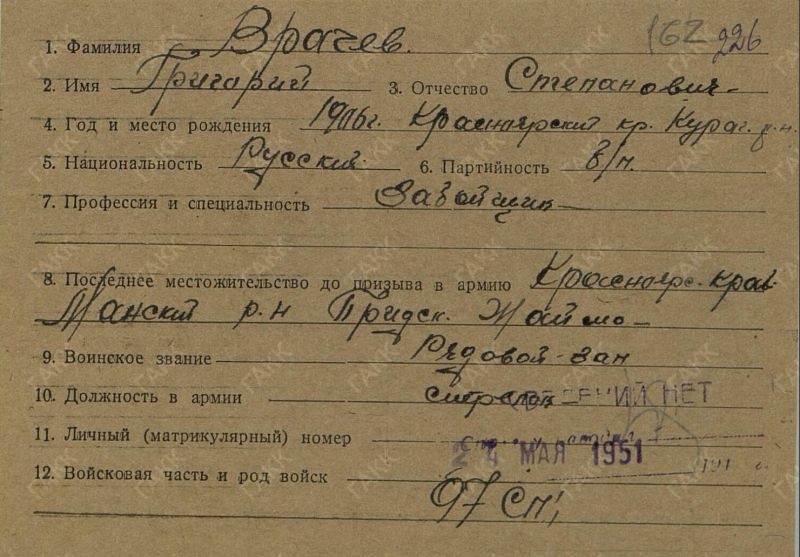 162 226
1. Фамилия Врачев.
2. Имя Григорий 3. Отчество Степанович
4. Год и место рождения 1906г. Красноярский кр. Кураг. р.н.
5. Национальность Русский 6. Партийность б/п.
7. Профессия и специальность Забойщик
8. Последнее местожительство до призыва в армию Красноярс. край
Манский р.н
9. Воинское звание Рядовой
10. Должность в армии стрелок СВЕДЕНИЙ НЕТ
11. Личный (матрикулярный) номер
24 МАЯ 1951
12. Войсковая часть и род войск
97 СП